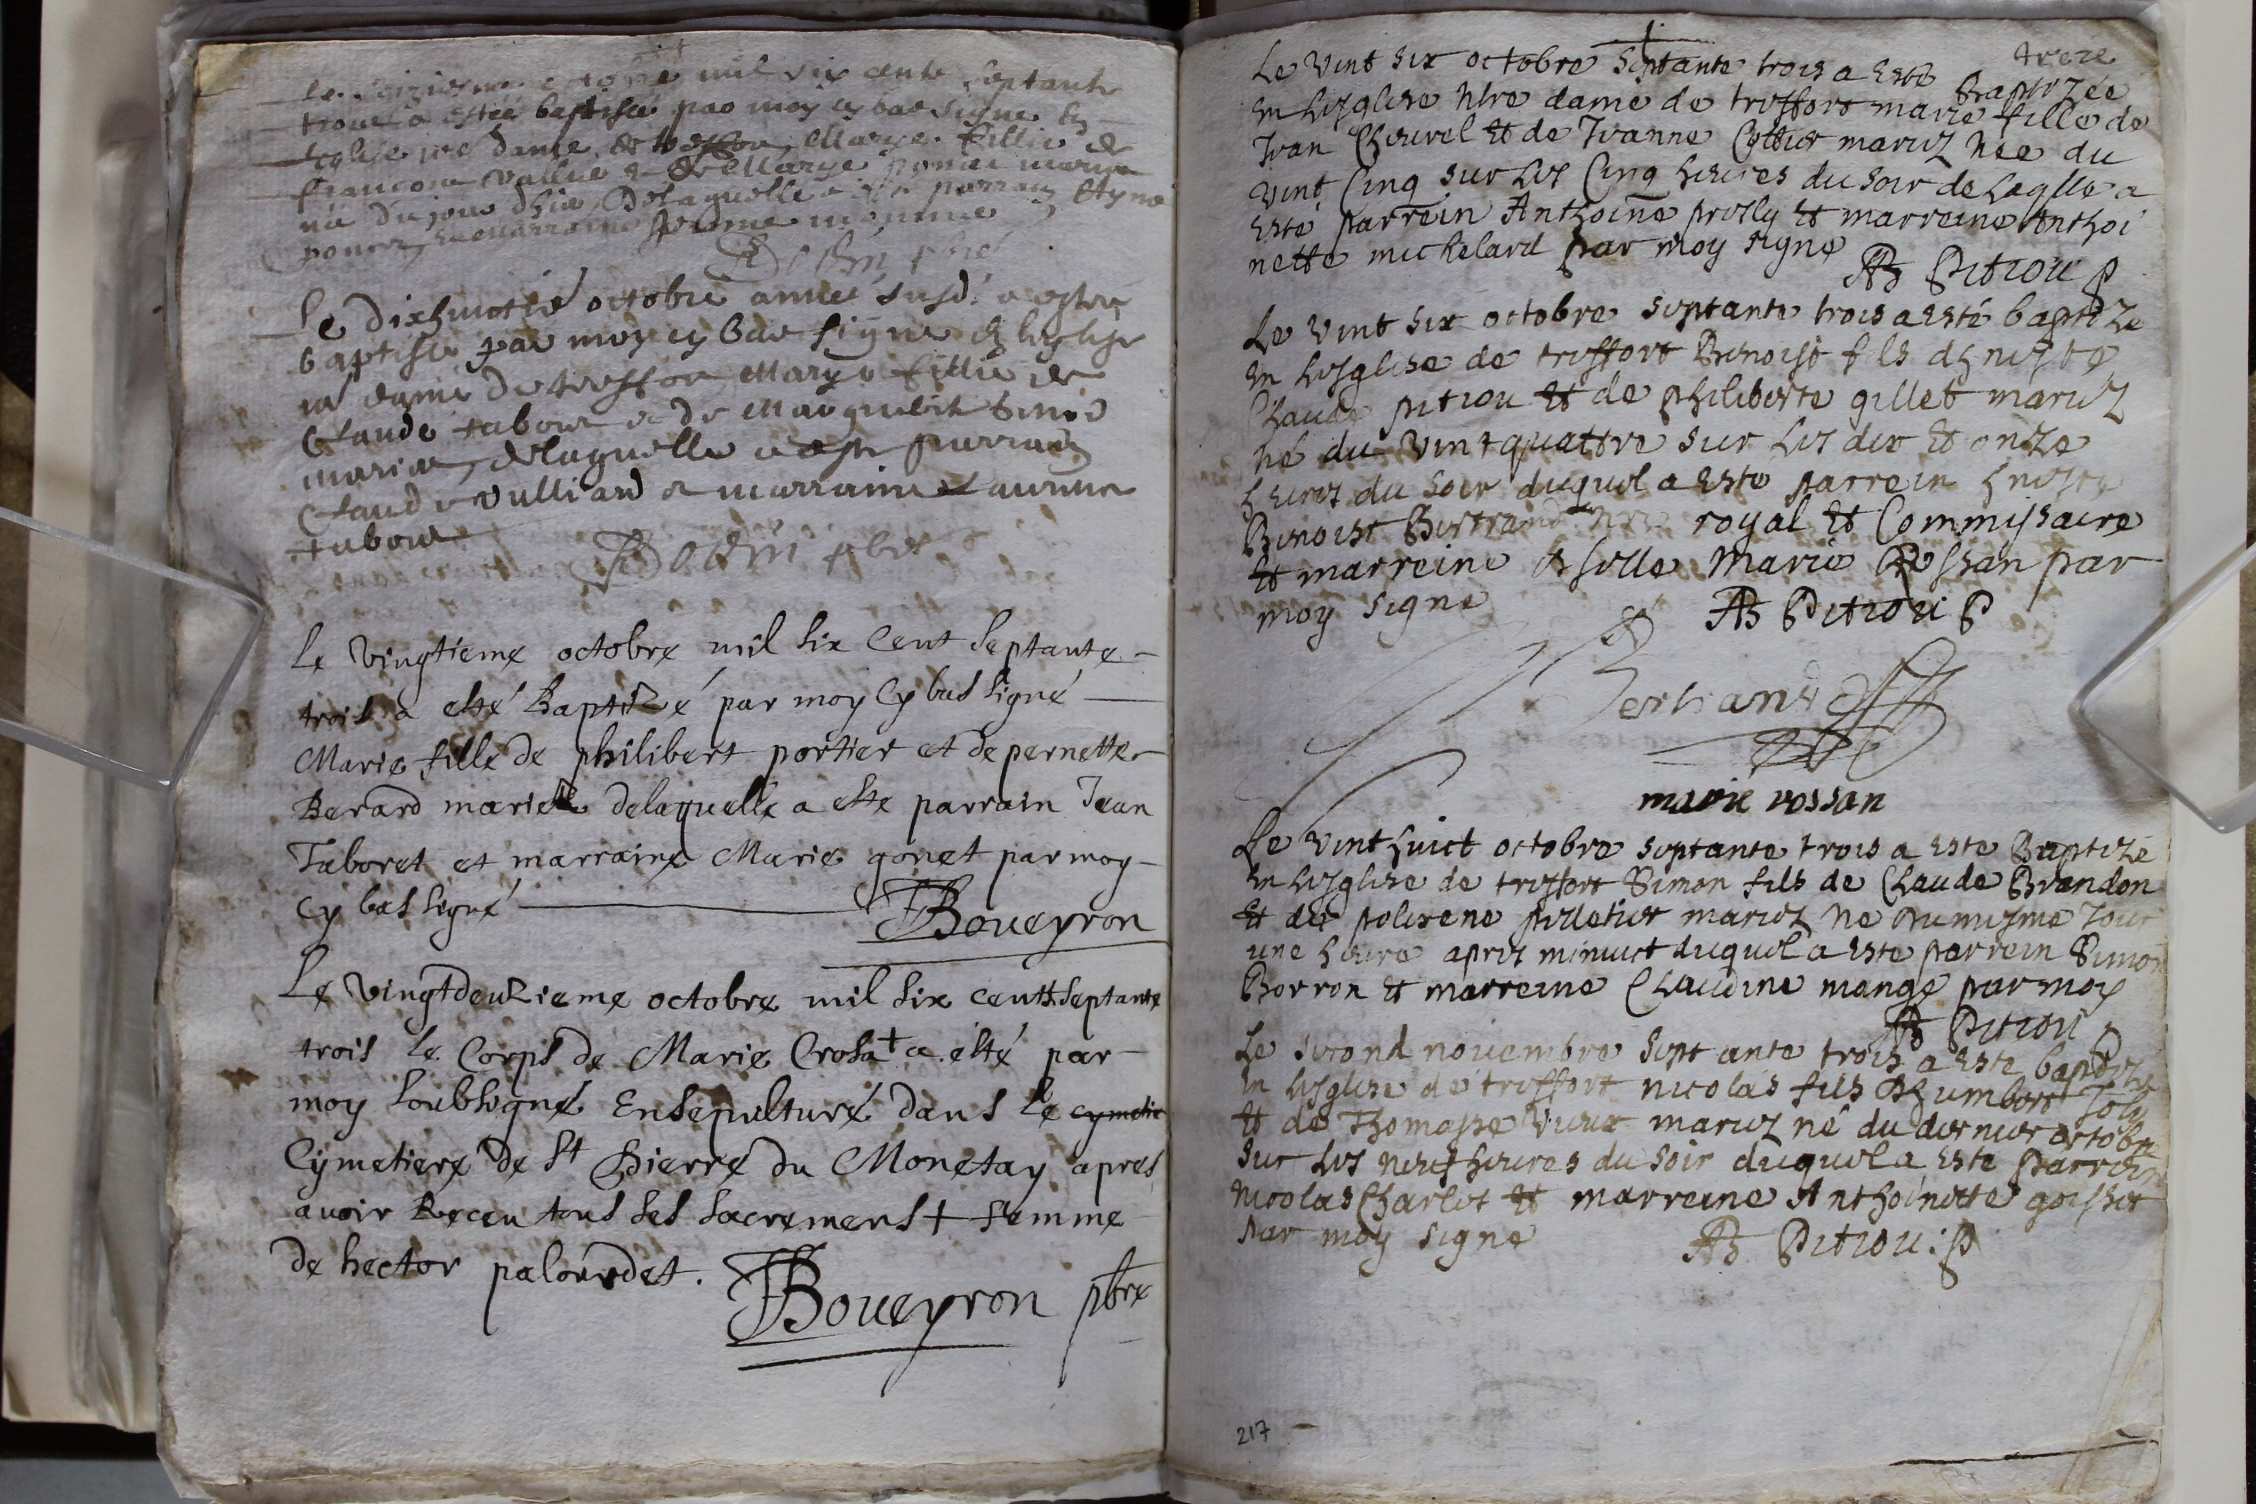 octobre mil six cents septante
trois a estée baptisée par moy cy bas signé En
dame de tresfort Marye fillie de
francois de Marye
née du jour delaquelle a esté parrain
Le dixhuictie octobre année susd. a estée
baptisée par moy cy bas signé En leglise
dame de tresfort Marye fillie de
Claude tabouret et de Marguerite
mariez delaquelle a esté parrain
Claude vulliard et marraine
tabouret
Bodin pbre
Le Vingtieme octobre mil six Cent septante
trois a esté Baptizé par moy Cy bas signé
Marie fille de philibert portier et de pernette
Berard mariés delaquelle a esté parrain Jean
Taboret et marraine Marie gonet par moy
Cy bas signé
Boueyron
Le Vingtdeuzieme octobre mil six cent septante
trois le Corps de Marie Crosat + a esté par
moy soubsigné Ensepulturé dans le cymetie
Cymetiere de St Pierre du Monetay apres
avoir Receu tous ses sacremens + femme
de hector palourdet.
Boueyron pbre
treze
Le vint six octobre septante trois a esté Baptizée
en lesglise nre dame de treffort marie fille de
Jean Chevrel et de Jeanne Cottier mariez née du
vint Cinq sur les Cinq heures du soir de laqlle a
esté parrein Anthoine prosly et marreine Anthoi
nette michelard par moy signé
AB Pitiou P
Le vint six octobre septante trois a esté baptizé
en lesglise de treffort Benoist fils dhneste
Claude pitiou et de philiberte gillet mariez
né du vintquattre sur les dix et onze
heures du soir duquel a esté parrein hneste
Benoist Bertrand royal et Commissaire
et marreine dhselle Marie Rossan par
moy signé
AB Pitiou P
Bertrand
marie rossan
Le vinthuict octobre septante trois a esté Baptizé
en lesglise de treffort Simon fils de Claude Brandon
et de polixene pelletier mariez né du mesme Jour
une heure apres minuict duquel a esté parrein Simon
Borron et marreine Claudine mange par moy
AB Pitiou P
Le second novembre septante trois a esté baptizé
en lesglise de treffort nicolas fils dhumbert Joly
et de Thomasse vieux mariez né du dernier octobre
sur les neuf heures du soir duquel a esté parrein
nicolas Charlet et marreine Anthoinette goisset
par moy signé
AB Pitiou : P
217